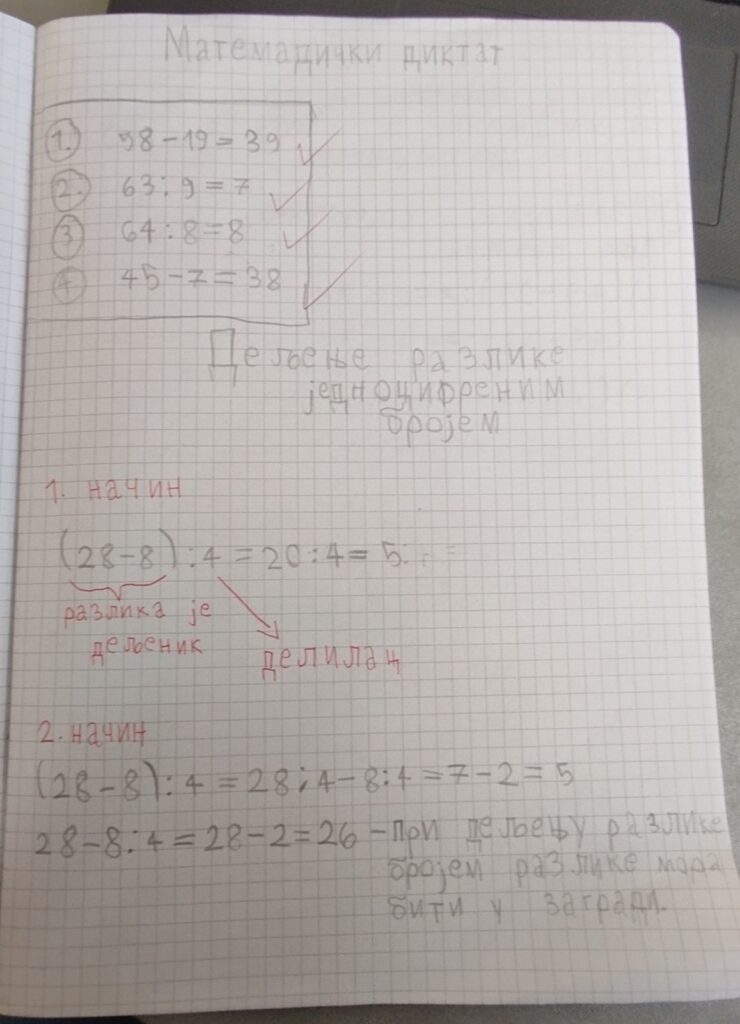 Математички диктат
1. 58-19=39
2. 63:9=7
3 64:8=8
4 45-7=38
Дељење разлике
једноцифреним
бројем
1. начин
(28-8):4=20:4=5
разлика је
дељеник
делилац
2. начин
(28-8):4=28:4-8:4=7-2=5
28-8:4=28-2=26-при дељењу разлике
бројем разлике мора
бити у загради.